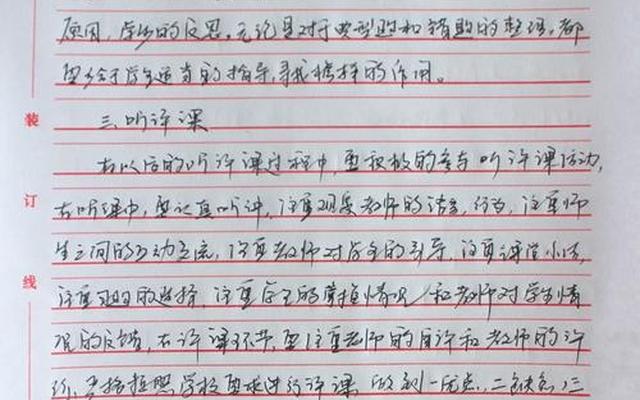 原因,磨炒的反思,无论是对于典型题和错题的整理,都
要给于学生适当的指导,寻找榜样的作用。
三、听评课
在以后的听评课过程中,要积极的参与听评课活动,
在听课中,要认真听讲,注重观察老师的语言,行为,注重师
生之间的互动交流,注重教师对学生的引导,注重课堂小活,
注重题目的选择,注重学生的掌握情况和老师对学生情
况的反馈,在评课环节,要注重老师的自评和老师的评
价,严格按照学校要求进行评课,做到一优点,二缺点,三
装
订
线